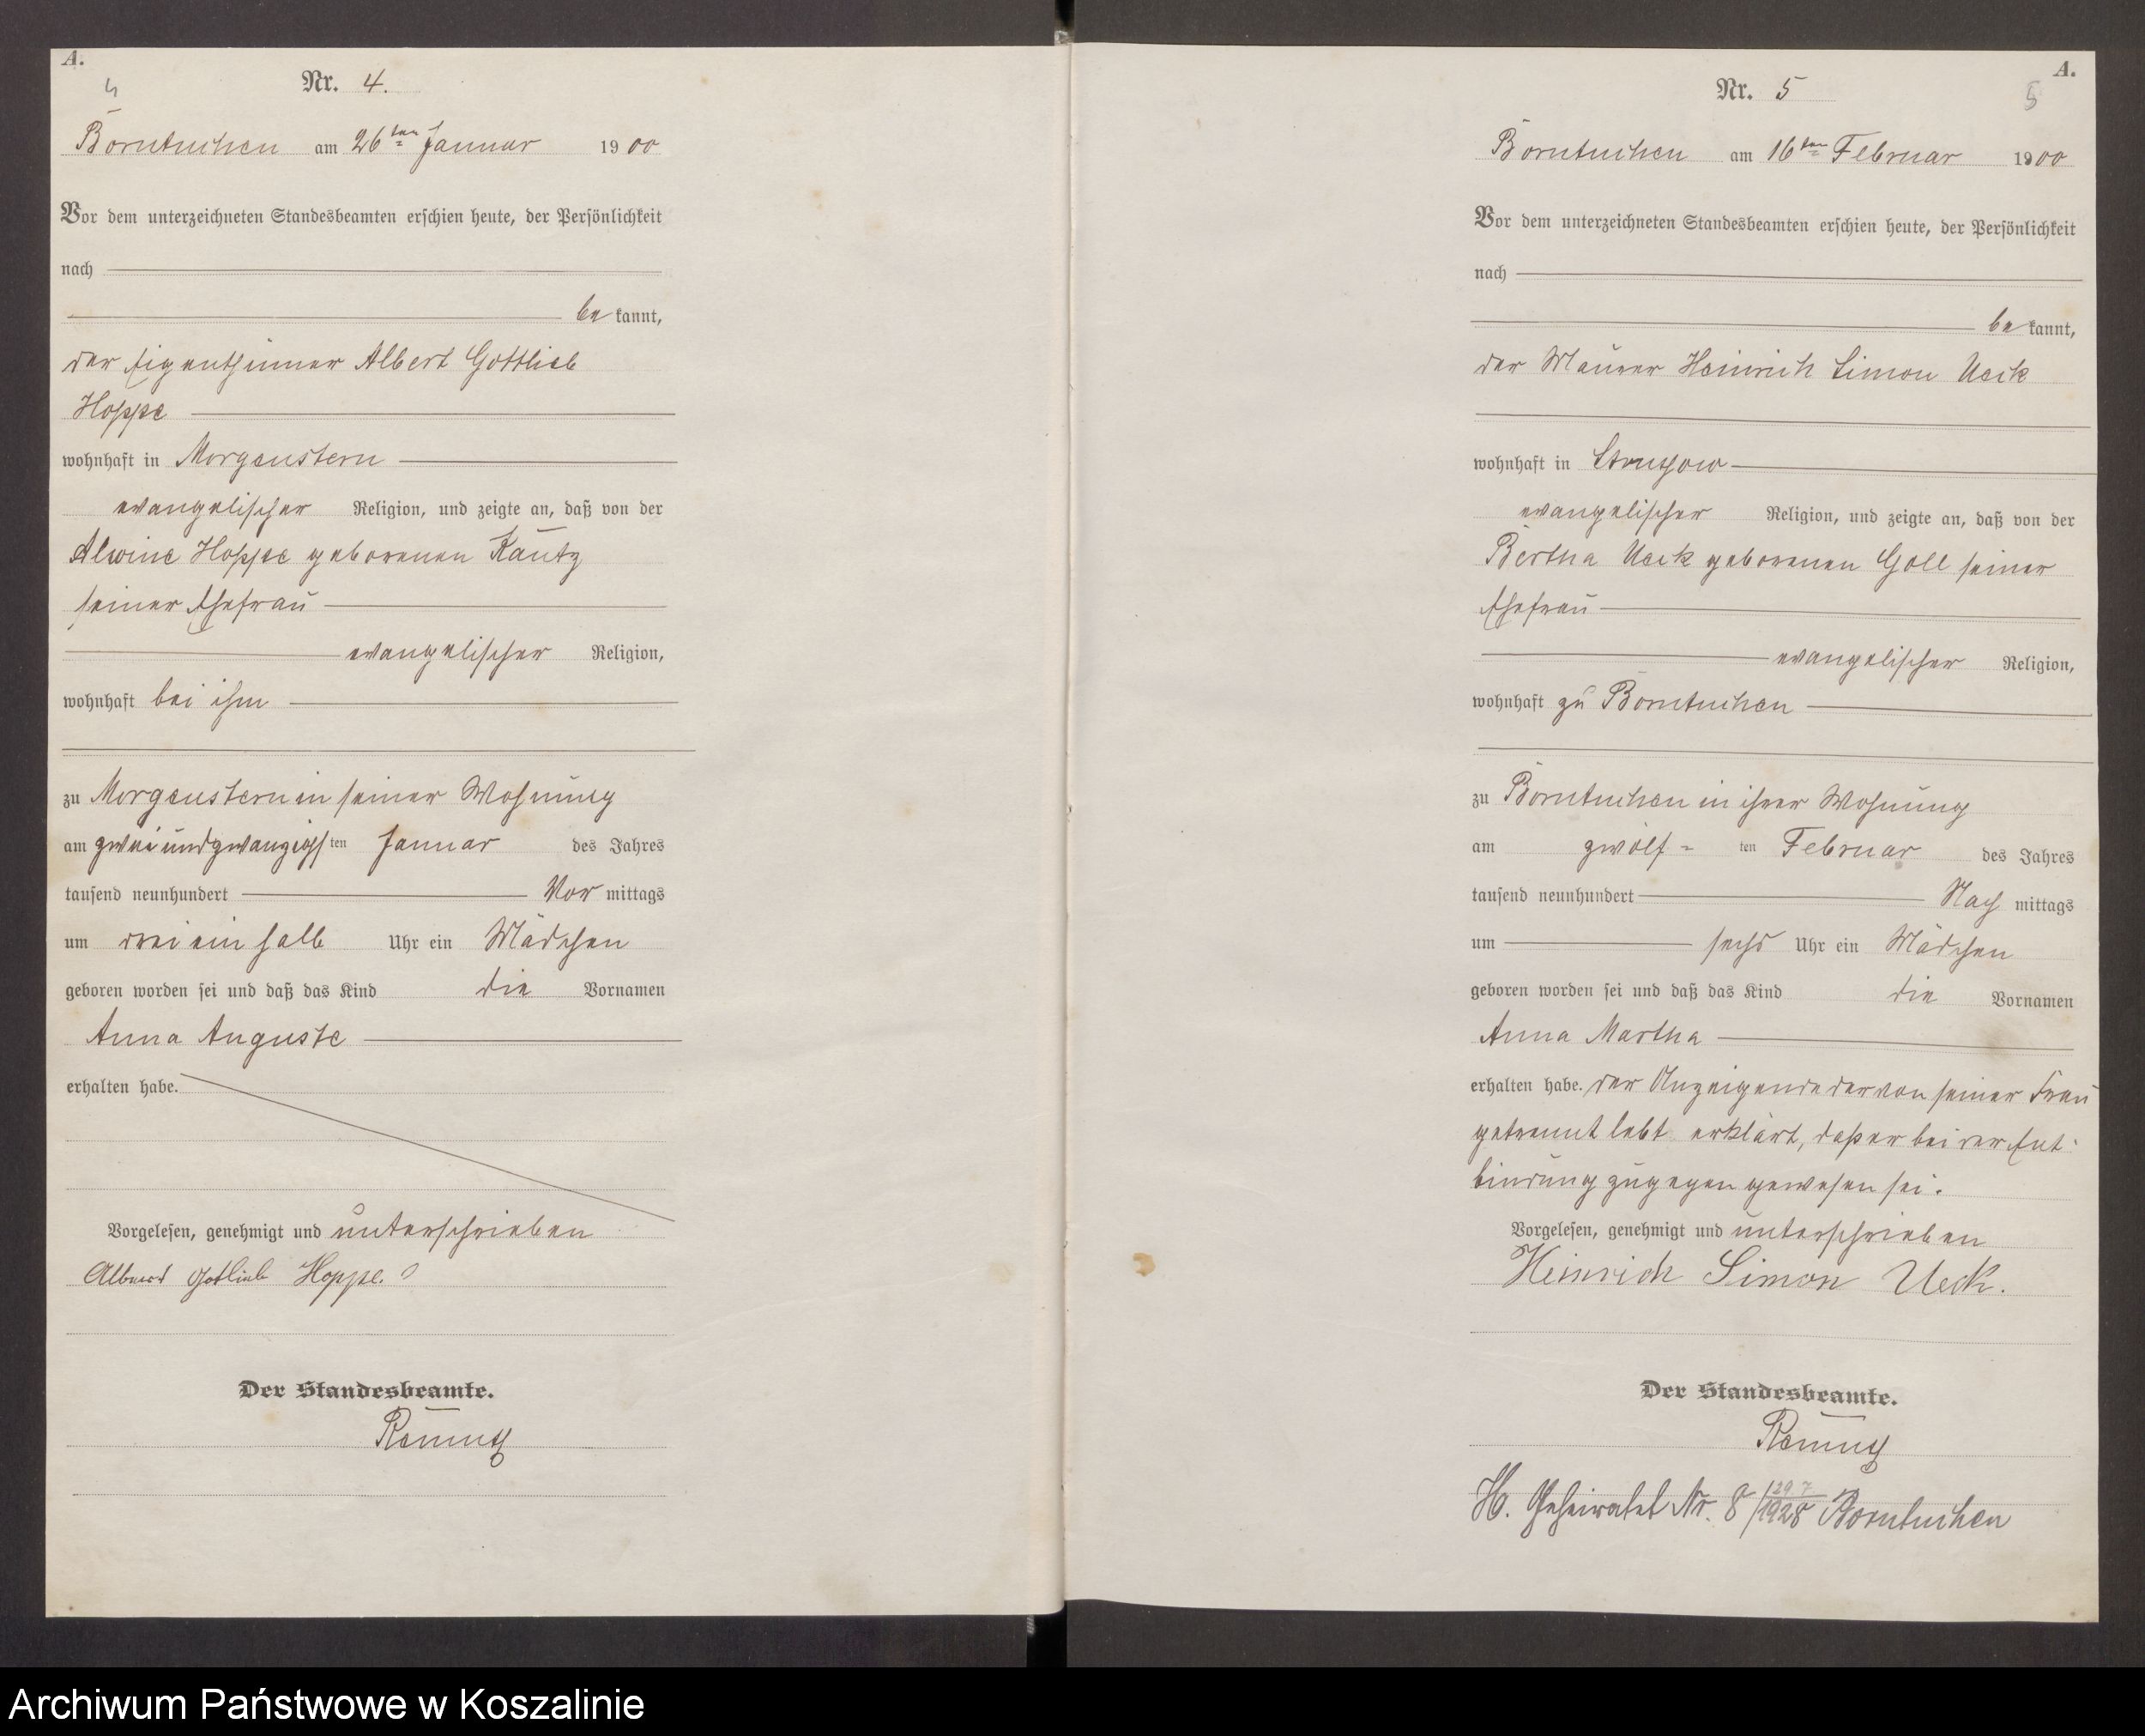 A.
4
Nr. 4.
Borntuchen am 26ten Januar 1900
Vor dem unterzeichneten Standesbeamten erschien heute, der Persönlichkeit
nach
be kannt,
der Eigenthümer Albert Gottlieb
Hoppe
wohnhaft in Morgenstern
evangelischer Religion, und zeigte an, daß von der
Alwine Hoppe geborenen Kautz
seiner Ehefrau
evangelischer Religion,
wohnhaft bei ihm
zu Morgenstern in seiner Wohnung
am zwei und zwanzigsten Januar des Jahres
tausend neunhundert Vor mittags
um drei ein halb Uhr ein Mädchen
geboren worden sei und daß das Kind die Vornamen
Anna Auguste
erhalten habe.
Vorgelesen, genehmigt und unterschrieben
Albert Gottlieb Hoppe.
Der Standesbeamte.
A.
5
Nr. 5
Borntuchen am 16ten Februar 1900
Vor dem unterzeichneten Standesbeamten erschien heute, der Persönlichkeit
nach
be kannt,
der Maurer Heinrich Simon Ueck
wohnhaft in
evangelischer Religion, und zeigte an, daß von der
Bertha Ueck geborenen Goll seiner
Ehefrau
evangelischer Religion,
wohnhaft zu Borntuchen
zu Borntuchen in ihrer Wohnung
am zwölf-ten Februar des Jahres
tausend neunhundert Nach mittags
um sechs Uhr ein Mädchen
geboren worden sei und daß das Kind die Vornamen
Anna Martha
erhalten habe. der Anzeigende der von seiner Frau
getrennt lebt erklärt, daß er bei der Ent-
bindung zugegen gewesen sei.
Vorgelesen, genehmigt und unterschrieben
Heinrich Simon Ueck.
Der Standesbeamte.
H. Geheiratet Nr. 8/1928 Borntuchen
Archiwum Państwowe w Koszalinie